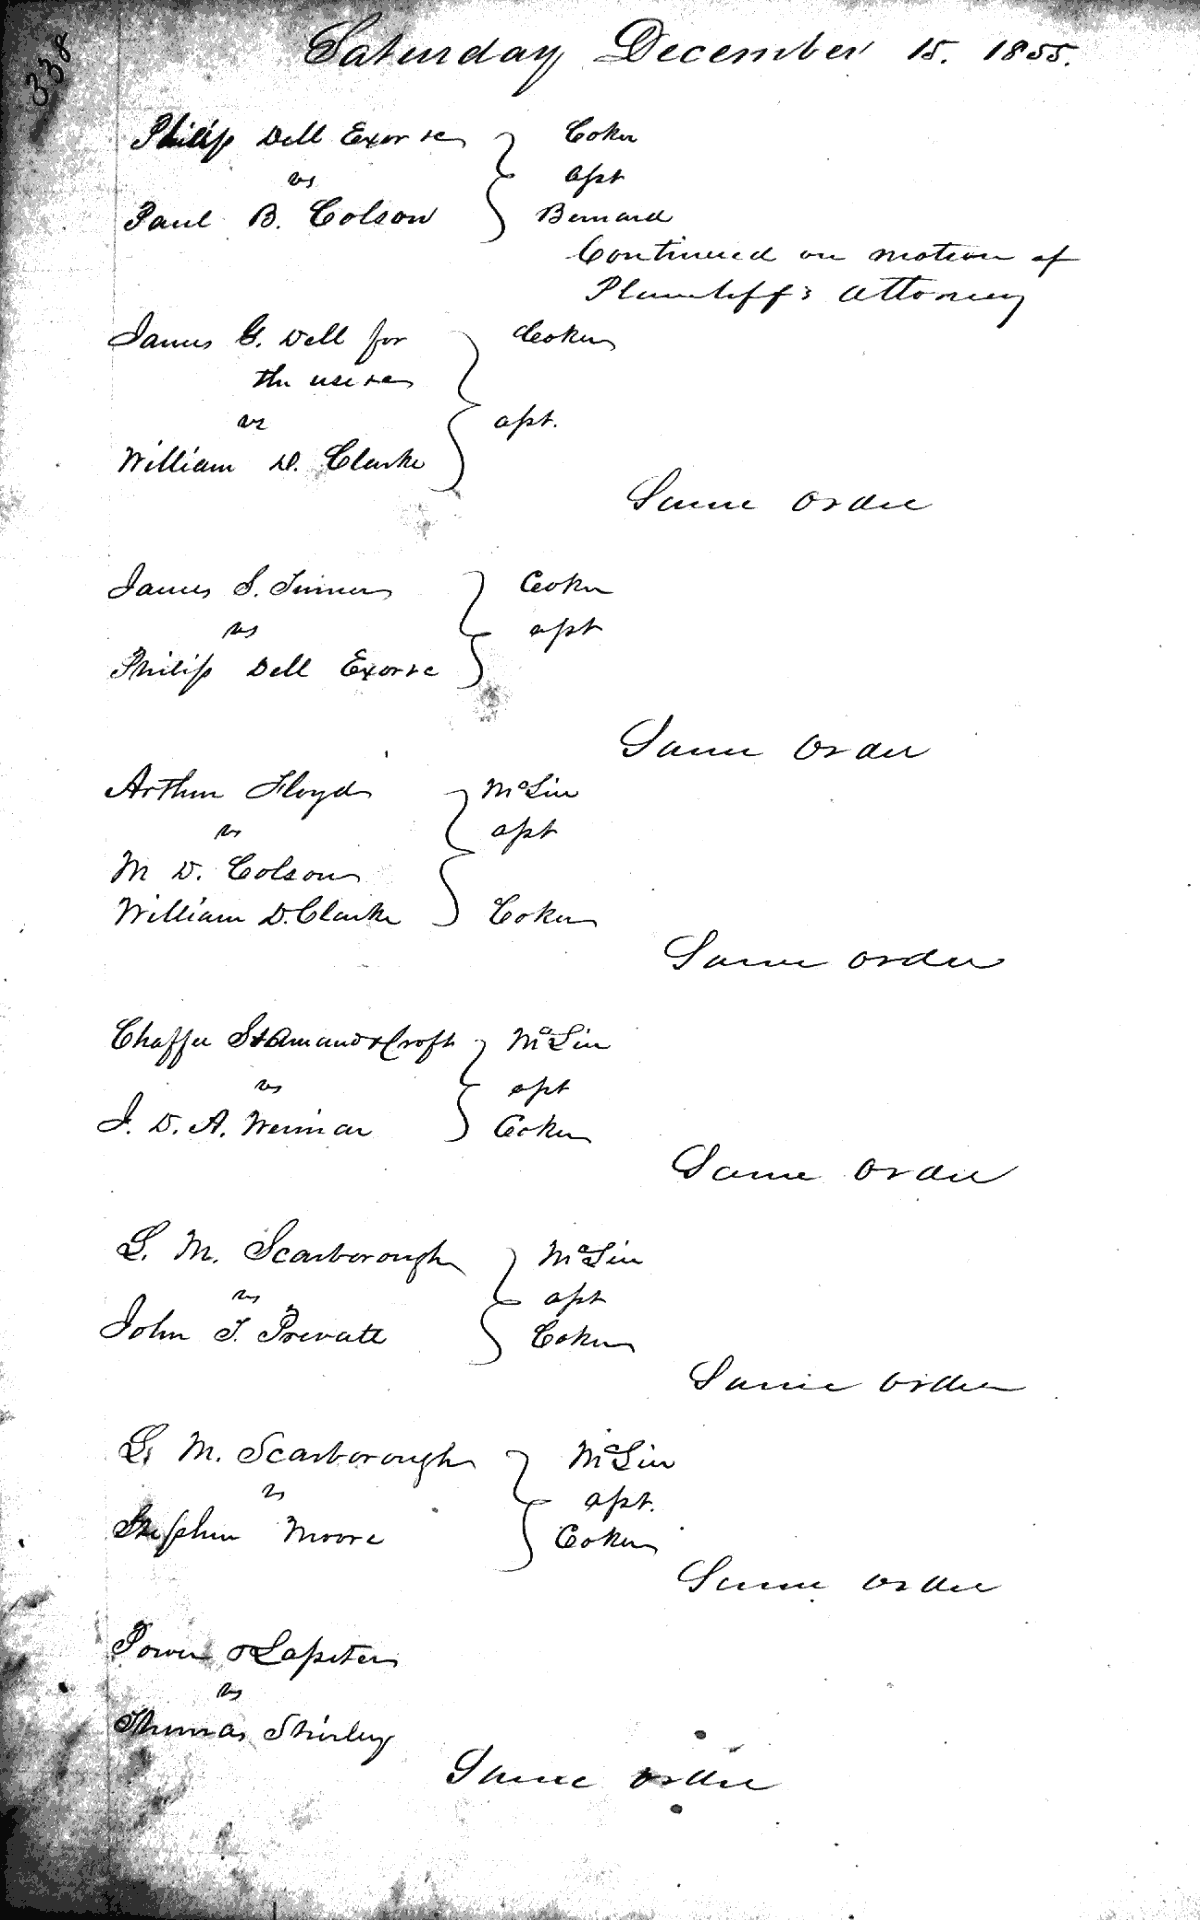 338
Saturday December 15. 1855.
Philip Dell Exor &c } Coker
vs } apt
Paul B. Colson } Bernard
Continued on motion of
Plaintiff's attorney
James G. Dell for } Coker
the use &c
vs } apt.
William D. Clarke
Same order
James S. Turner } Coker
vs } apt
Philip Dell Exor &c
Same order
Arthur Floyd } McLin
vs } apt
M D. Colson
William D. Clarke } Coker
Same order
Chaffee St Amand & Croft } McLin
vs } apt
J. D. A. Weiman } Coker
Same order
L. M. Scarborough } McLin
vs } apt
John T. Prevatt } Coker
Same order
L. M. Scarborough } McLin
vs } apt.
Stephen Moore } Coker
Same order
Tower & Lapiter
vs
Thomas Shirley
Same order